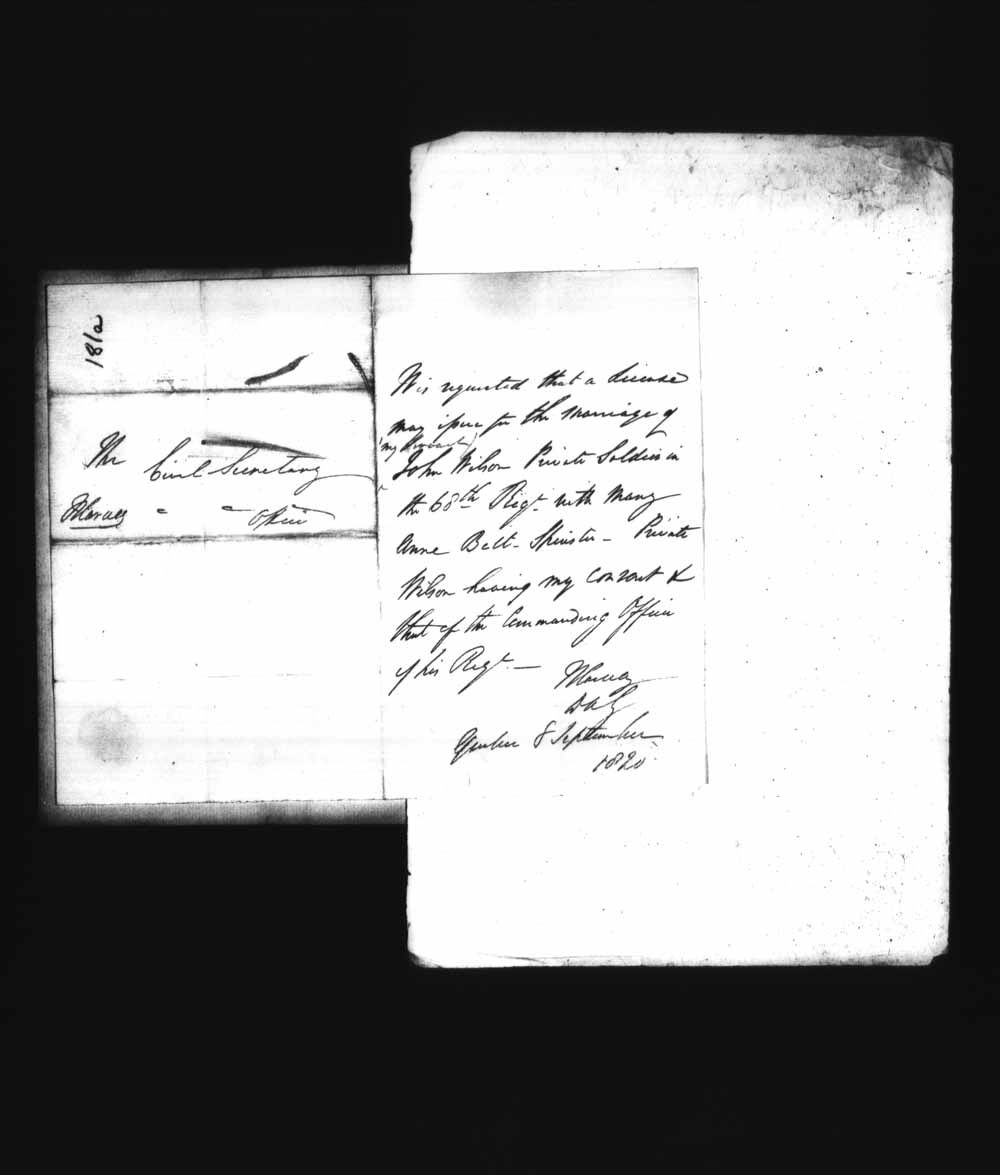 181a
The
Civil Secretary
Harvey " " Office
It is requested that a License
may issue for the Marriage of
(my Servant)
John Wilson Private Soldier in
the 68th Regt. with Mary
Anne Belt - Spinster - Private
Wilson having my consent &
that of the Commanding Officer
of his Regt. —
JHarvey
DAG
Quebec 8 September
1820